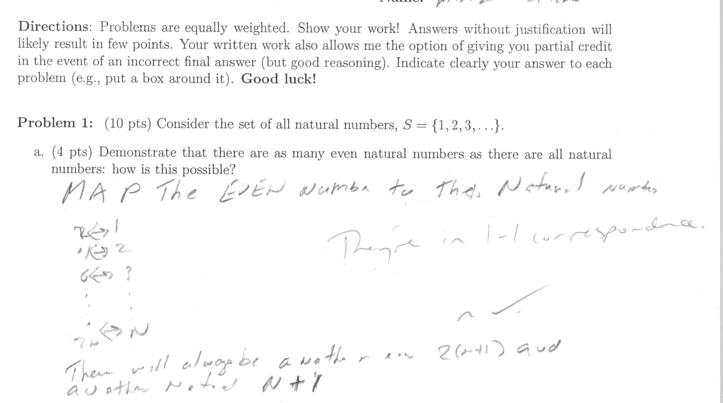 Directions: Problems are equally weighted. Show your work! Answers without justification will
likely result in few points. Your written work also allows me the option of giving you partial credit
in the event of an incorrect final answer (but good reasoning). Indicate clearly your answer to each
problem (e.g., put a box around it). Good luck!
Problem 1: (10 pts) Consider the set of all natural numbers, S = {1, 2, 3, . . .}.
a. (4 pts) Demonstrate that there are as many even natural numbers as there are all natural
numbers: how is this possible?
MAP The EVEN Number to the Natural Numbers
2↔1
4↔2
They're in 1-1 correspondence.
6↔3
2N↔N
There will always be another even 2(n+1) and
another Natural N+1